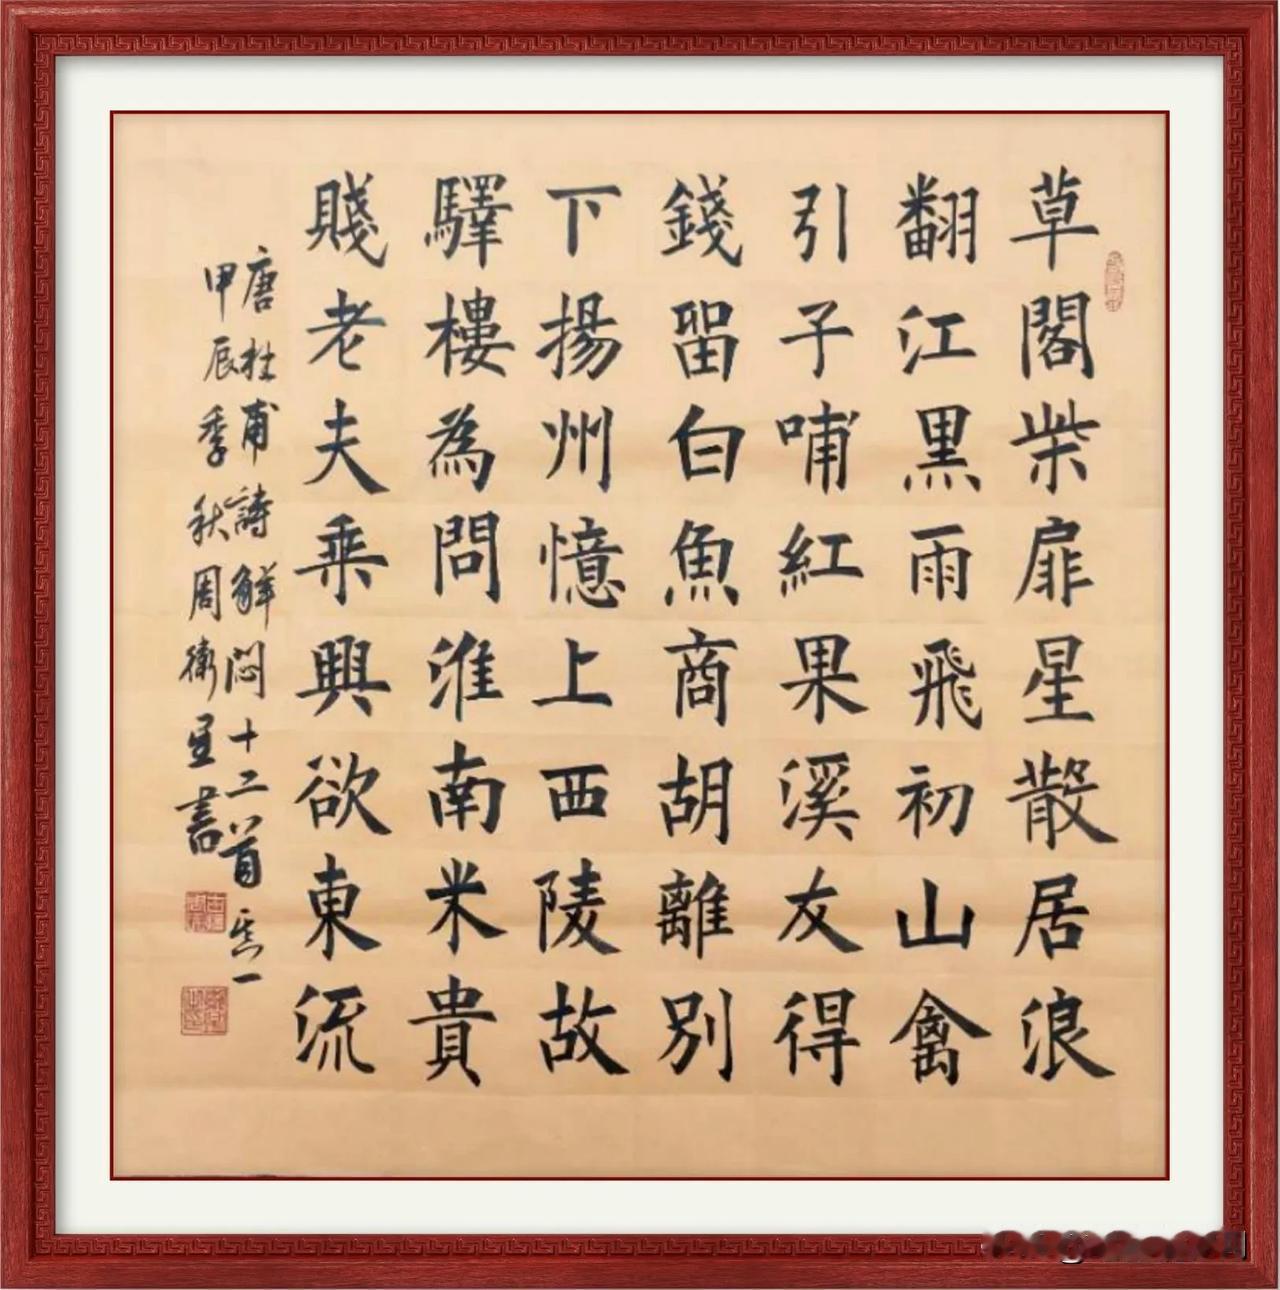 草閣柴扉星散居浪
翻江黑雨飛初山禽
引子哺紅果溪友得
錢留白魚商胡離別
下揚州憶上西陵故
驛樓為問淮南米貴
賤老夫乘興欲東流
唐杜甫詩解悶十二首其一
甲辰季秋周衛星書